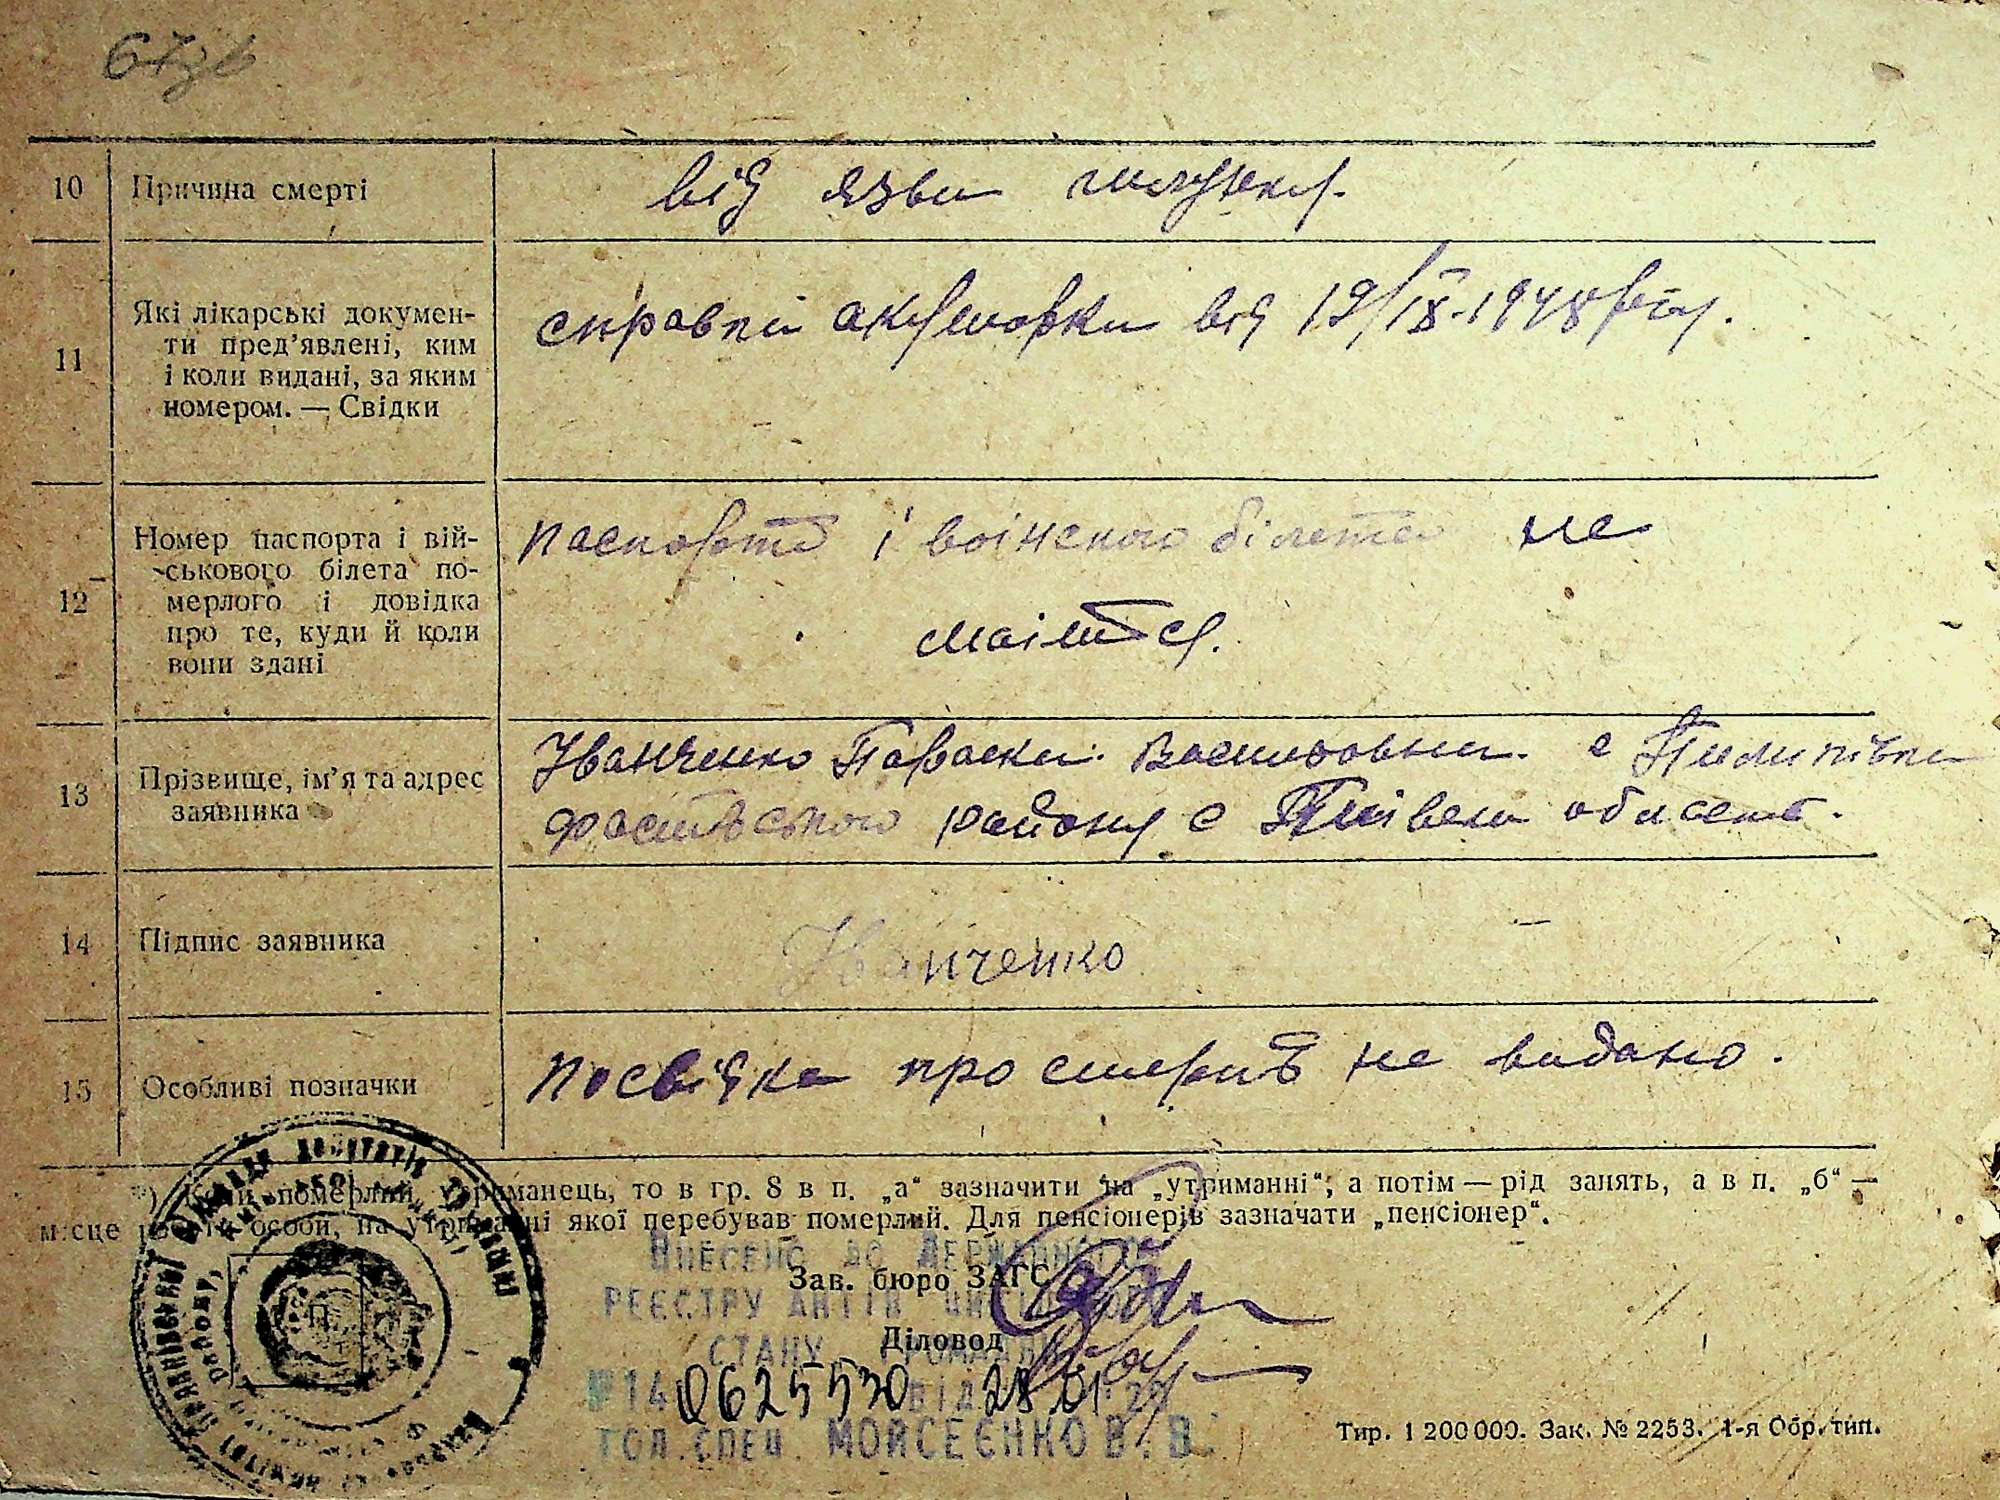 67зв
10 Причина смерті від язви шлунку.
11 Які лікарські докумен-
ти пред'явлені, ким
і коли видані, за яким
номером. — Свідки
справки акушорки від 19/IX-1948 року.
12 Номер паспорта і вій-
ськового білета по-
мерлого і довідка
про те, куди й коли
вони здані
паспорта і воінского білета не
маіться.
13 Прізвище, ім'я та адрес
заявника
Іванченко Параски Василовни. с Пилипівки
фастівського району
14 Підпис заявника Іванченко
15 Особливі позначки Посвідка про смерть не видано.
*) Коли померлий утриманець, то в гр. 8 в п. „а“ зазначити „на утриманні“; а потім — рід занять, а в п. „б“ —
місце роботи особи, на утриманні якої перебував померлий. Для пенсіонерів зазначати „пенсіонер“.
Внесено до Державного
Зав. бюро ЗАГС
реєстру актів цивільного
Діловод
стану громадян
№ 14 0625530 від 28.01.20
гол. спец. Мойсеєнко В. В.
Тир. 1 200 000. Зак. № 2253. 1-я Обр. тип.